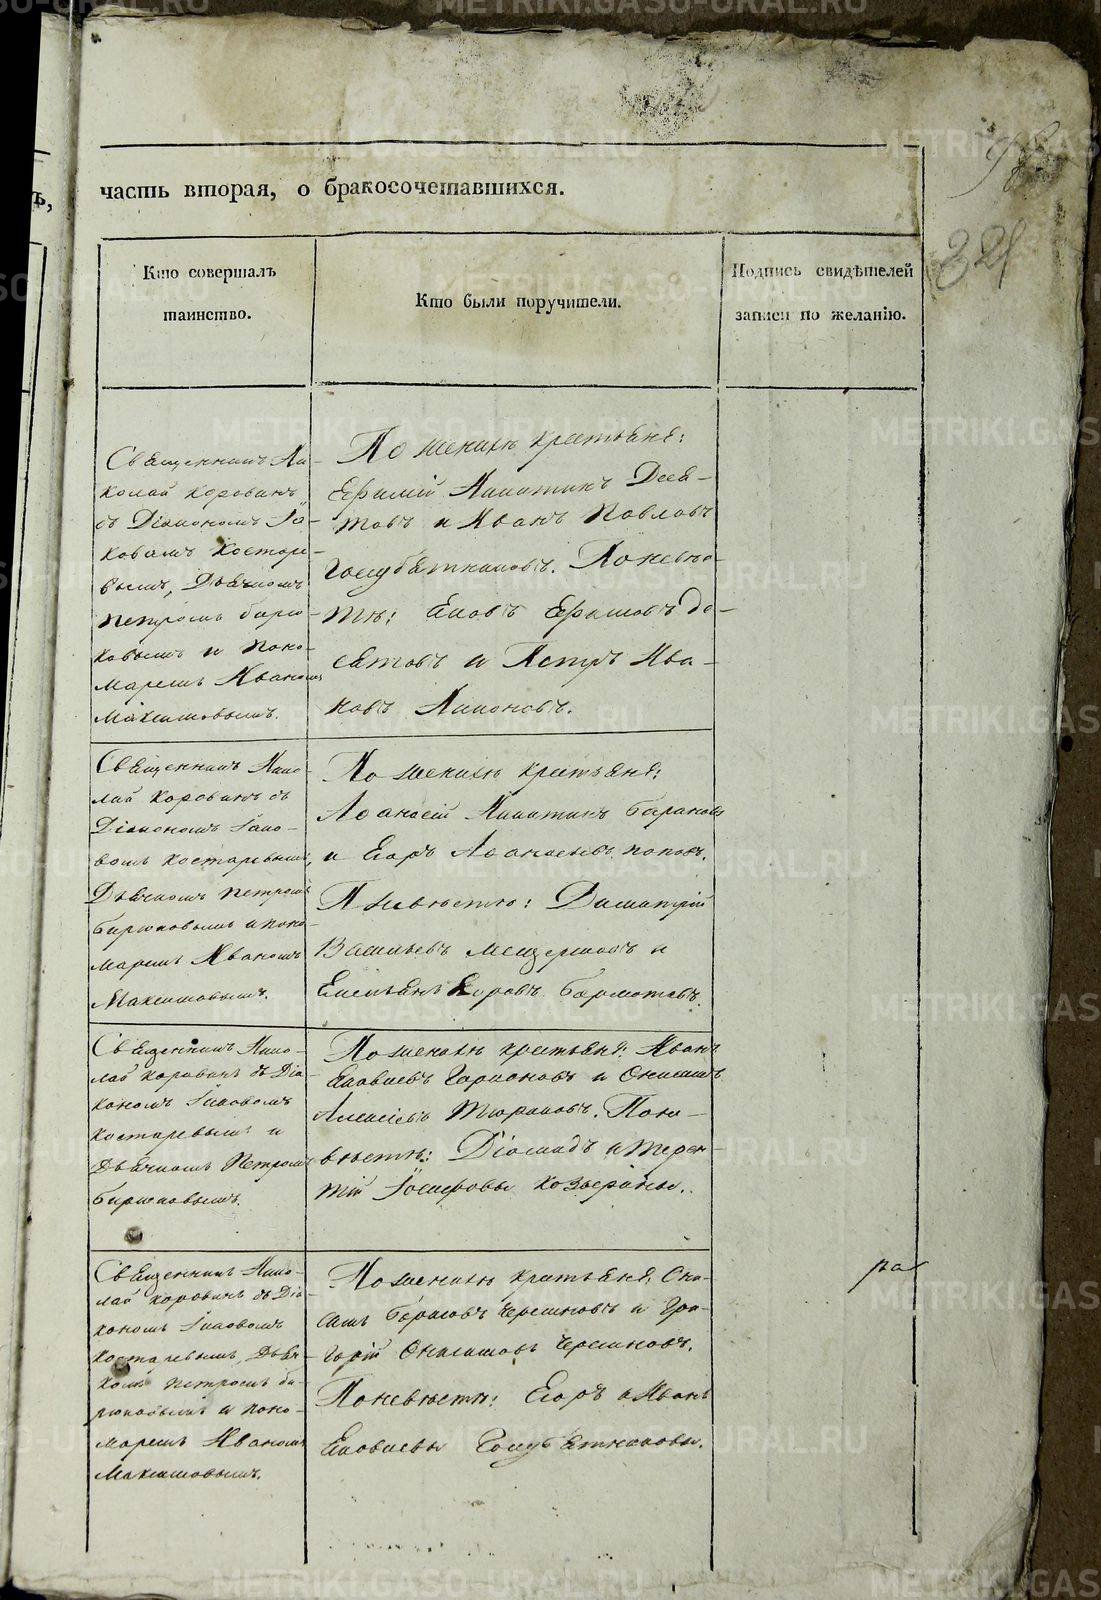 часть вторая, о бракосочетавшихся.
321
Кто совершалъ
таинство.
Кто были поручители.
Подпись свидѣтелей
записи по желанію.
Священникъ Ни-
колай Коровинъ
съ Діакономъ Іа-
ковомъ Костаре-
вымъ, Дьячкомъ
Петромъ Бирю-
ковымъ и поно-
маремъ Иваномъ
Максимовымъ.
По женихѣ крестьяне:
Ефимій Никитинъ Девя-
товъ и Иванъ Павловъ
Голубятниковъ. По невѣс-
тѣ: Ефимовъ де-
вятовъ и Петръ Ива-
новъ
Священникъ Нико-
лай Коровинъ съ
Діакономъ Іако-
вомъ Костаревымъ,
Дьячкомъ Петромъ
Бирюковымъ и поно-
маремъ Иваномъ
Максимовымъ.
По женихѣ крестьяне:
Аѳанасій Никитинъ Барановъ
и Егоръ Аѳанасьевъ Поповъ.
По невѣстѣ: Димитрій
Васильевъ Мещеряковъ и
Емельянъ
Священникъ Нико-
лай Коровинъ съ Діа-
кономъ Іаковомъ
Костаревымъ и
Дьячкомъ Петромъ
Бирюковымъ.
По женихѣ крестьяне: Иванъ
и Онисимъ
Алексѣевъ Тюриковъ. По не-
вѣстѣ: Діомидъ и Терен-
тій Іосифовы
Священникъ Нико-
лай Коровинъ съ Діа-
кономъ Іаковомъ
Костаревымъ, Дьяч-
комъ Петромъ Би-
рюковымъ и поно-
маремъ Иваномъ
Максимовымъ.
По женихѣ крестьяне: Они-
симъ и Гри-
горій Онисимовъ
По невѣстѣ: Егоръ и Иванъ
Голубятниковы.
METRIKI.GASO-URAL.RU